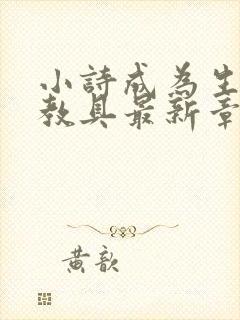 小詩成為生
教具最新章
黃歆